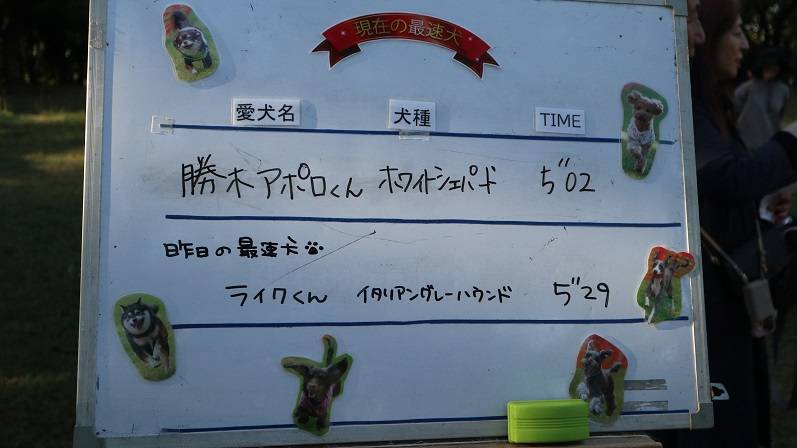 現在の最速犬
愛犬名 犬種 TIME
勝木アポロくん ホワイトシェパード 5"02
昨日の最速犬
ライクくん イタリアングレーハウンド 5"29